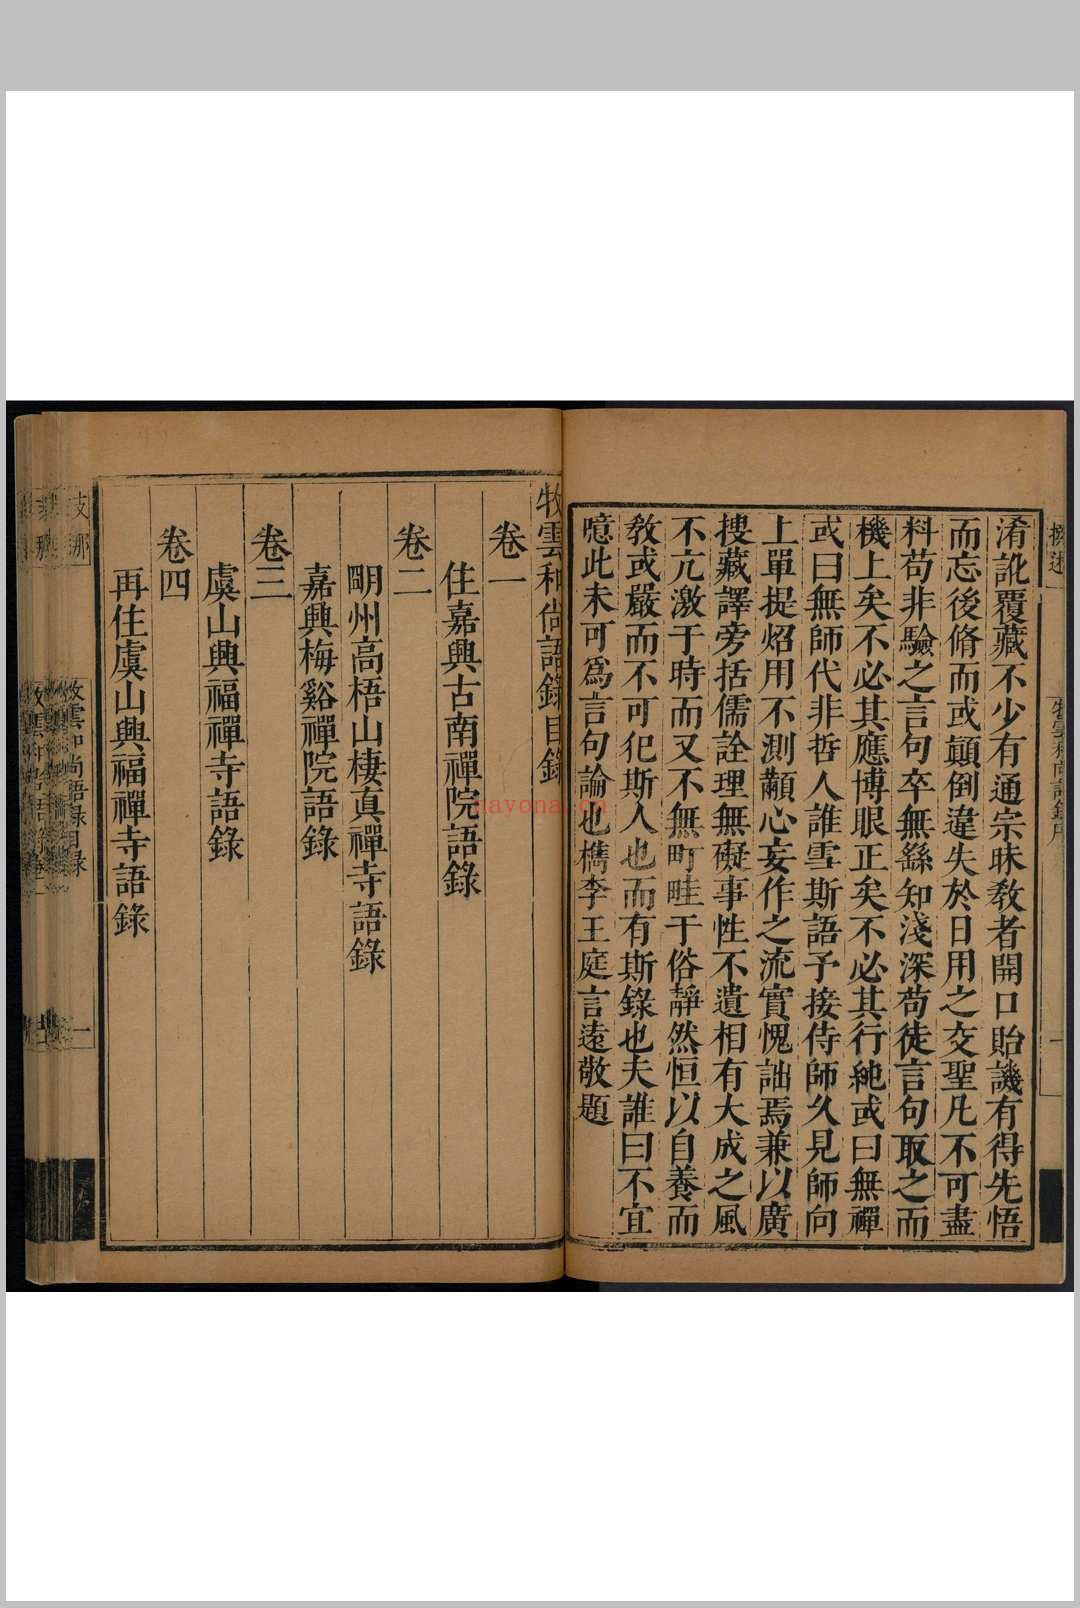 淆訛覆藏不少有通宗昧教者開口貽譏有得先悟
而忘後脩而或顛倒違失於日用之交聖凡不可盡
料苟非驗之言句卒無繇知淺深苟徒言句取之而
機上矣不必其應博眼正矣不必其行純或曰無禪
或曰無師代非哲人誰雪斯語予接侍師久見師向
上單提炤用不測顢心妄作之流實愧詘焉兼以廣
搜藏譯旁括儒詮理無礙事性不遺相有大成之風
不亢激于時而又不無町畦于俗靜然恒以自養而
教或嚴而不可犯斯人也而有斯錄也夫誰曰不宜
噫此未可為言句論也檇李王庭言遠敬題
牧雲和尚語錄目錄
卷一
住嘉興古南禪院語錄
卷二
明州高梧山棲真禪寺語錄
嘉興梅谿禪院語錄
卷三
虞山興福禪寺語錄
卷四
再住虞山興福禪寺語錄
支那
牧雲和尚語錄目錄
一
nayona.cn